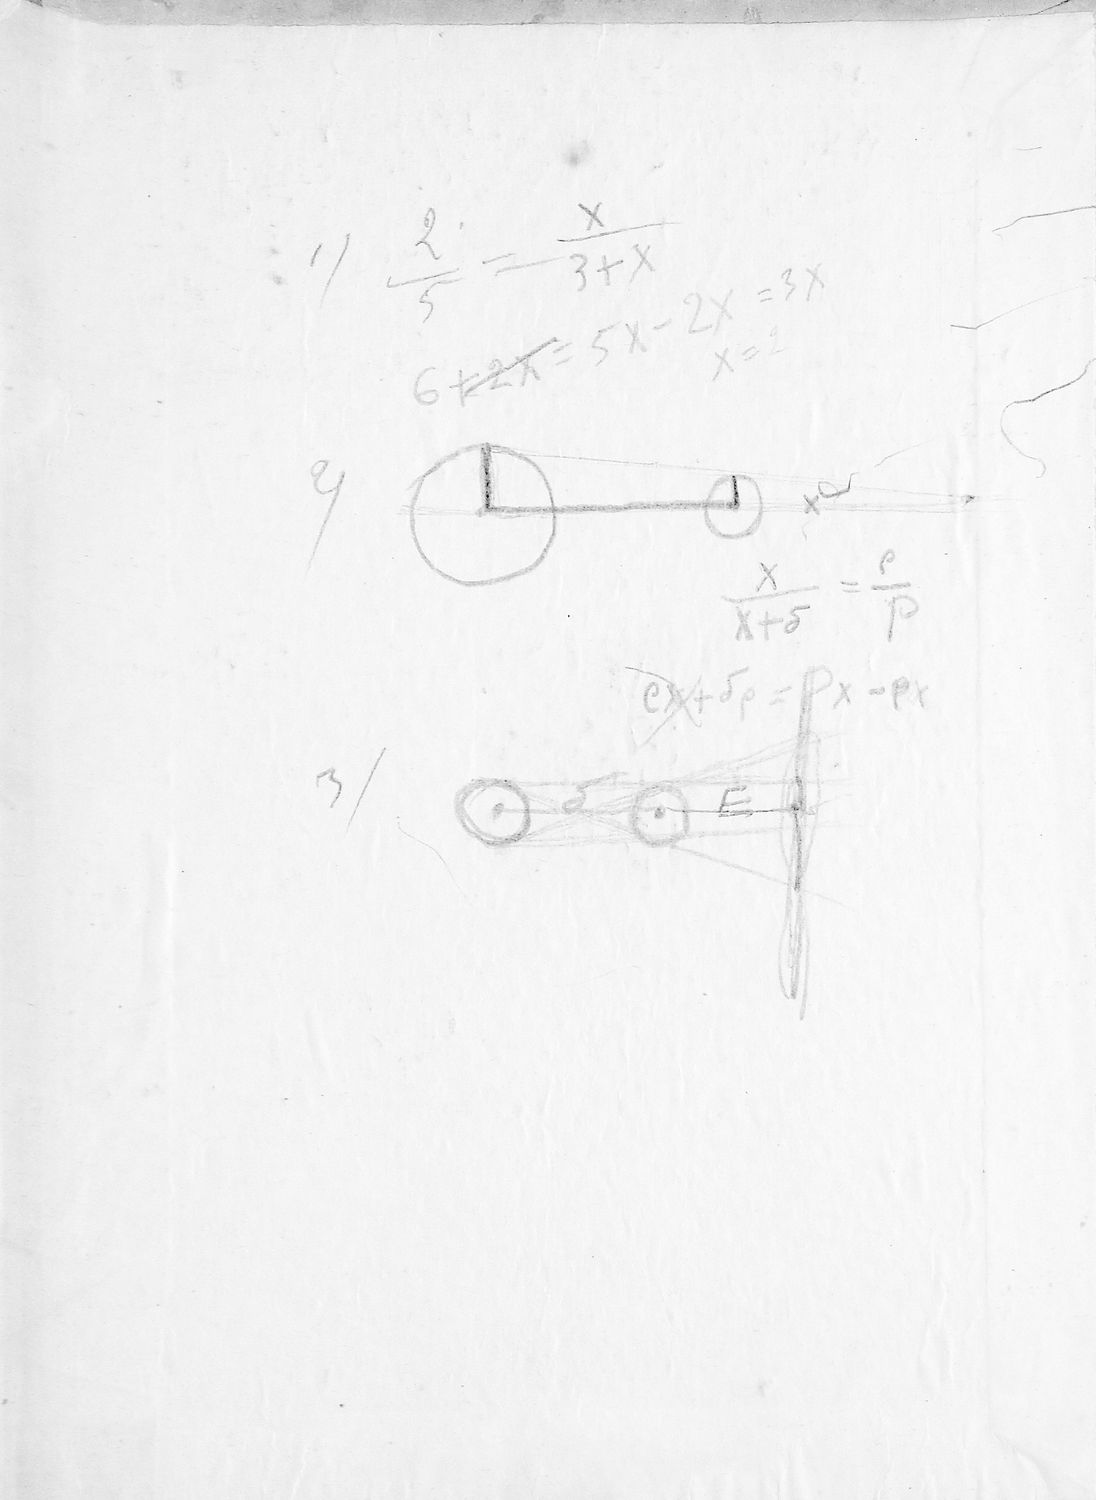 1) 2/5 = x/(3+x)
6+2x = 5x - 2x = 3x
x = 2
2)
x
x/(x+δ) = ρ/P
ρx + δρ = Px - ρx
3)
δ E